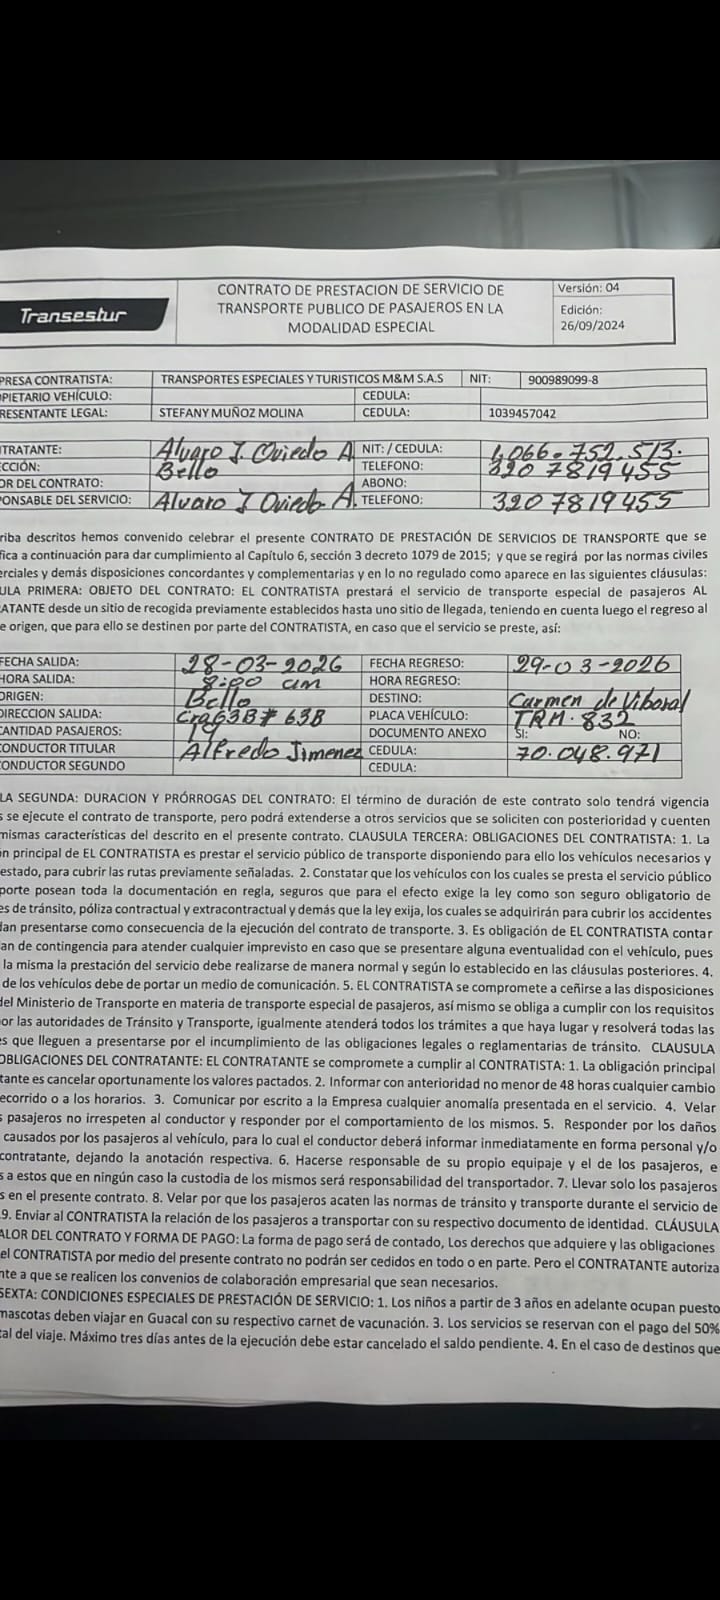 Transestur
CONTRATO DE PRESTACION DE SERVICIO DE
TRANSPORTE PUBLICO DE PASAJEROS EN LA
MODALIDAD ESPECIAL
Versión: 04
Edición:
26/09/2024
PRESA CONTRATISTA: TRANSPORTES ESPECIALES Y TURISTICOS M&M S.A.S NIT: 900989099-8
OPIETARIO VEHÍCULO: CEDULA:
RESENTANTE LEGAL: STEFANY MUÑOZ MOLINA CEDULA: 1039457042
TRATANTE: Alvaro J. Oviedo A NIT: / CEDULA: 1,066.752.513.
ECCIÓN: Bello TELEFONO: 320 7819455
OR DEL CONTRATO: ABONO:
PONSABLE DEL SERVICIO: Alvaro J Oviedo A. TELEFONO: 320 7819455
riba descritos hemos convenido celebrar el presente CONTRATO DE PRESTACIÓN DE SERVICIOS DE TRANSPORTE que se
fica a continuación para dar cumplimiento al Capítulo 6, sección 3 decreto 1079 de 2015; y que se regirá por las normas civiles
erciales y demás disposiciones concordantes y complementarias y en lo no regulado como aparece en las siguientes cláusulas:
ULA PRIMERA: OBJETO DEL CONTRATO: EL CONTRATISTA prestará el servicio de transporte especial de pasajeros AL
RATANTE desde un sitio de recogida previamente establecidos hasta uno sitio de llegada, teniendo en cuenta luego el regreso al
e origen, que para ello se destinen por parte del CONTRATISTA, en caso que el servicio se preste, así:
FECHA SALIDA: 28-03-2026 FECHA REGRESO: 29-03-2026
HORA SALIDA: 8:00 am HORA REGRESO:
ORIGEN: Bello DESTINO: Carmen de Viboral
DIRECCION SALIDA: Cra63B# 63B PLACA VEHÍCULO: TRM.832
CANTIDAD PASAJEROS: 19 DOCUMENTO ANEXO SI: NO:
CONDUCTOR TITULAR Alfredo Jimenez CEDULA: 70.048.971
CONDUCTOR SEGUNDO CEDULA:
LA SEGUNDA: DURACION Y PRÓRROGAS DEL CONTRATO: El término de duración de este contrato solo tendrá vigencia
s se ejecute el contrato de transporte, pero podrá extenderse a otros servicios que se soliciten con posterioridad y cuenten
mismas características del descrito en el presente contrato. CLAUSULA TERCERA: OBLIGACIONES DEL CONTRATISTA: 1. La
ón principal de EL CONTRATISTA es prestar el servicio público de transporte disponiendo para ello los vehículos necesarios y
estado, para cubrir las rutas previamente señaladas. 2. Constatar que los vehículos con los cuales se presta el servicio público
porte posean toda la documentación en regla, seguros que para el efecto exige la ley como son seguro obligatorio de
es de tránsito, póliza contractual y extracontractual y demás que la ley exija, los cuales se adquirirán para cubrir los accidentes
dan presentarse como consecuencia de la ejecución del contrato de transporte. 3. Es obligación de EL CONTRATISTA contar
lan de contingencia para atender cualquier imprevisto en caso que se presentare alguna eventualidad con el vehículo, pues
la misma la prestación del servicio debe realizarse de manera normal y según lo establecido en las cláusulas posteriores. 4.
de los vehículos debe de portar un medio de comunicación. 5. EL CONTRATISTA se compromete a ceñirse a las disposiciones
del Ministerio de Transporte en materia de transporte especial de pasajeros, así mismo se obliga a cumplir con los requisitos
or las autoridades de Tránsito y Transporte, igualmente atenderá todos los trámites a que haya lugar y resolverá todas las
es que lleguen a presentarse por el incumplimiento de las obligaciones legales o reglamentarias de tránsito. CLAUSULA
OBLIGACIONES DEL CONTRATANTE: EL CONTRATANTE se compromete a cumplir al CONTRATISTA: 1. La obligación principal
tante es cancelar oportunamente los valores pactados. 2. Informar con anterioridad no menor de 48 horas cualquier cambio
ecorrido o a los horarios. 3. Comunicar por escrito a la Empresa cualquier anomalía presentada en el servicio. 4. Velar
s pasajeros no irrespeten al conductor y responder por el comportamiento de los mismos. 5. Responder por los daños
causados por los pasajeros al vehículo, para lo cual el conductor deberá informar inmediatamente en forma personal y/o
contratante, dejando la anotación respectiva. 6. Hacerse responsable de su propio equipaje y el de los pasajeros, e
s a estos que en ningún caso la custodia de los mismos será responsabilidad del transportador. 7. Llevar solo los pasajeros
s en el presente contrato. 8. Velar por que los pasajeros acaten las normas de tránsito y transporte durante el servicio de
.9. Enviar al CONTRATISTA la relación de los pasajeros a transportar con su respectivo documento de identidad. CLÁUSULA
ALOR DEL CONTRATO Y FORMA DE PAGO: La forma de pago será de contado, Los derechos que adquiere y las obligaciones
el CONTRATISTA por medio del presente contrato no podrán ser cedidos en todo o en parte. Pero el CONTRATANTE autoriza
nte a que se realicen los convenios de colaboración empresarial que sean necesarios.
SEXTA: CONDICIONES ESPECIALES DE PRESTACIÓN DE SERVICIO: 1. Los niños a partir de 3 años en adelante ocupan puesto
mascotas deben viajar en Guacal con su respectivo carnet de vacunación. 3. Los servicios se reservan con el pago del 50%
tal del viaje. Máximo tres días antes de la ejecución debe estar cancelado el saldo pendiente. 4. En el caso de destinos que